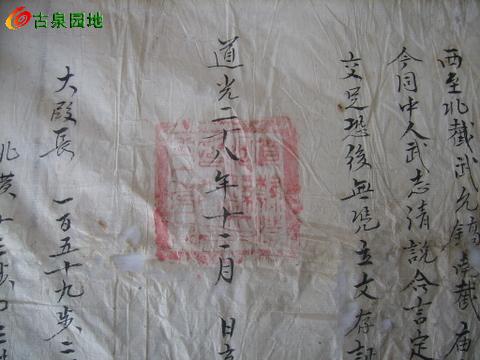 古泉园地
西至北截武允鎬南截庙
今同中人武志清說合言定
交足恐後無憑立文存証
道光二十八年十二月 日立
大殿長 一百五十九步二
北横十三步